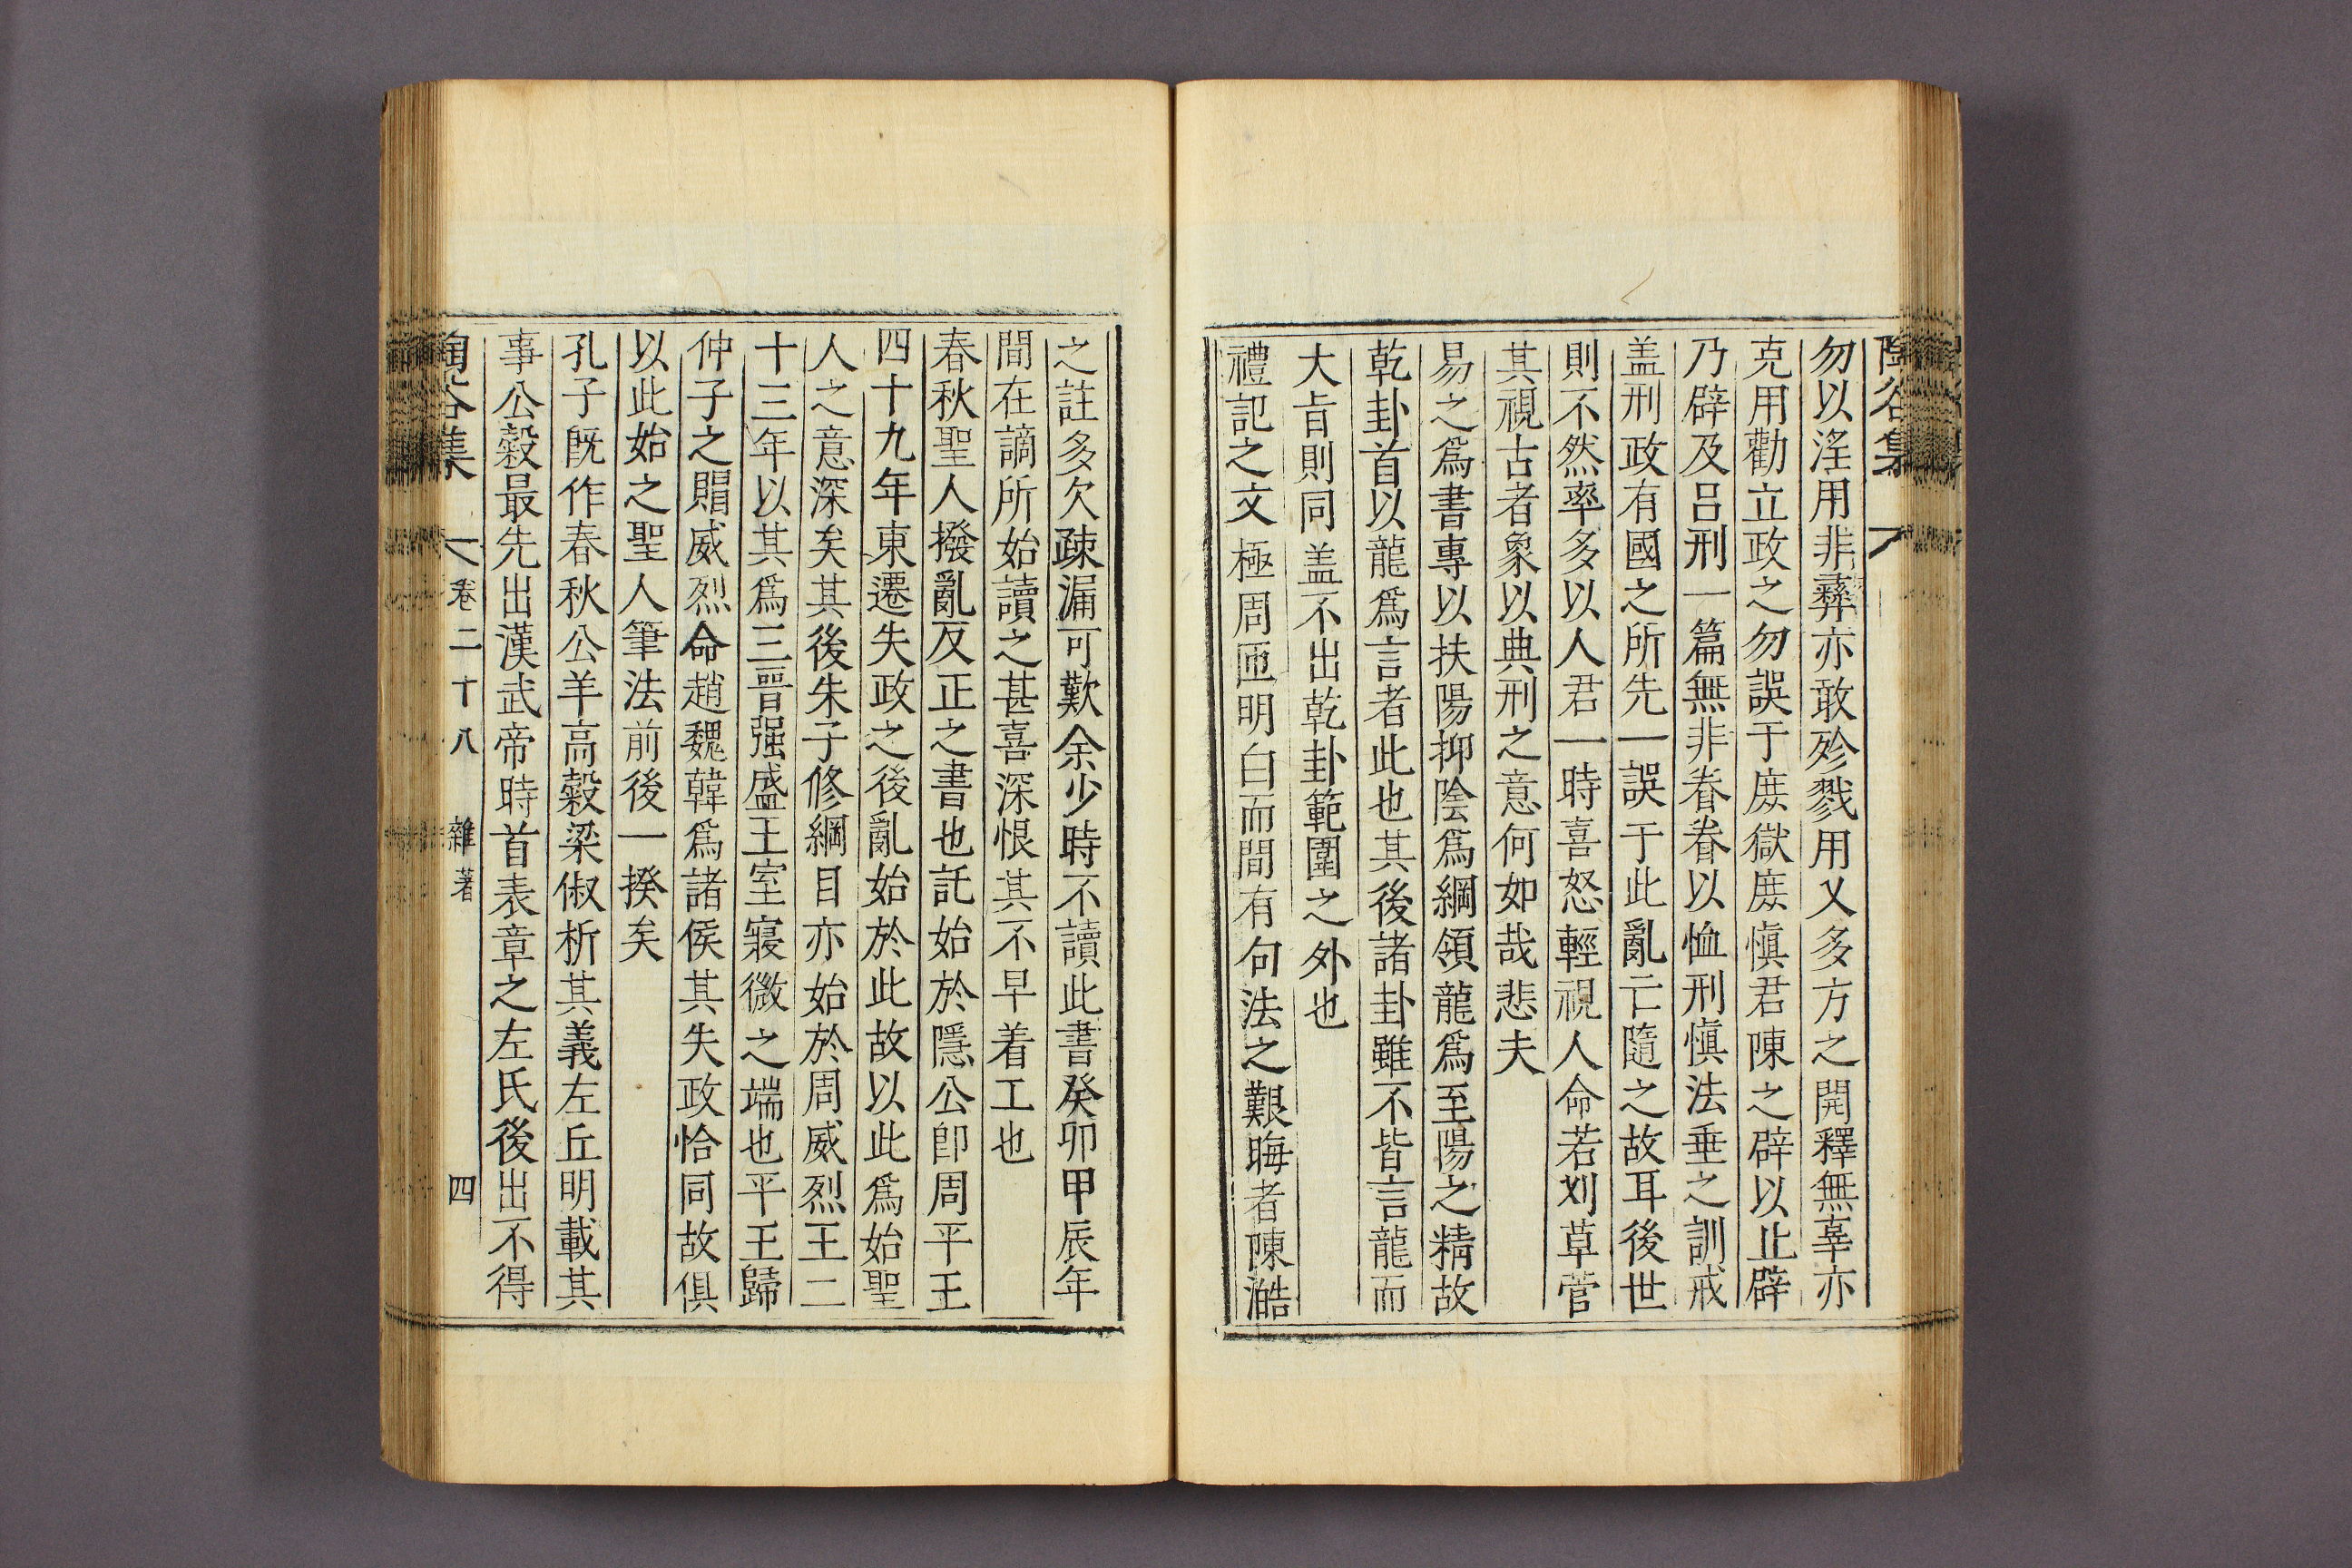 陶谷集
勿以淫用非彛亦敢殄戮用乂多方之開釋無辜亦
克用勸立政之勿誤于庶獄庶愼君陳之辟以止辟
乃辟及呂刑一篇無非眷眷以恤刑愼法垂之訓戒
盖刑政有國之所先一誤于此亂亡隨之故耳後世
則不然率多以人君一時喜怒輕視人命若刈草菅
其視古者象以典刑之意何如哉悲夫
易之爲書專以扶陽抑陰爲綱領龍爲至陽之精故
乾卦首以龍爲言者此也其後諸卦雖不皆言龍而
大旨則同盖不出乾卦範圍之外也
禮記之文極周匝明白而間有句法之艱晦者陳澔
之註多欠疎漏可歎余少時不讀此書癸卯甲辰年
間在謫所始讀之甚喜深恨其不早着工也
春秋聖人撥亂反正之書也託始於隱公卽周平王
四十九年東遷失政之後亂始於此故以此爲始聖
人之意深矣其後朱子修綱目亦始於周威烈王二
十三年以其爲三晉强盛王室寢微之端也平王歸
仲子之賵威烈命趙魏韓爲諸侯其失政恰同故俱
以此始之聖人筆法前後一揆矣
孔子旣作春秋公羊高穀梁俶析其義左丘明載其
事公穀最先出漢武帝時首表章之左氏後出不得
陶谷集 卷二十八 雜著 四